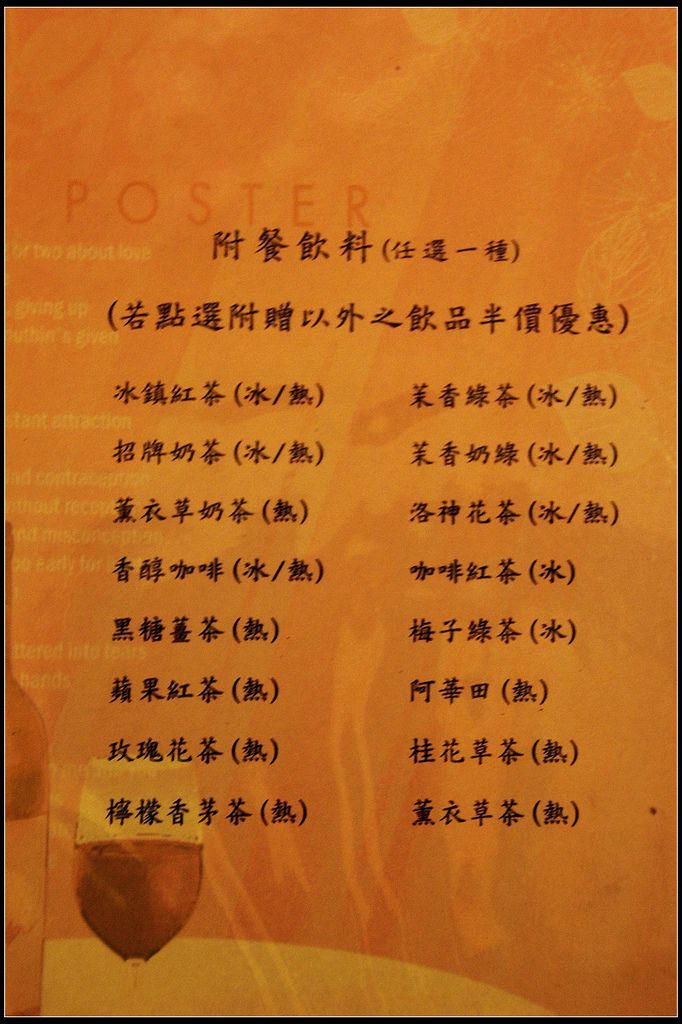 POSTER
or two about love
附餐飲料(任選一種)
giving up
(若點選附贈以外之飲品半價優惠)
冰鎮紅茶(冰/熱) 茉香綠茶(冰/熱)
招牌奶茶(冰/熱) 茉香奶綠(冰/熱)
薰衣草奶茶(熱) 洛神花茶(冰/熱)
香醇咖啡(冰/熱) 咖啡紅茶(冰)
黑糖薑茶(熱) 梅子綠茶(冰)
蘋果紅茶(熱) 阿華田(熱)
玫瑰花茶(熱) 桂花草茶(熱)
檸檬香茅茶(熱) 薰衣草茶(熱)